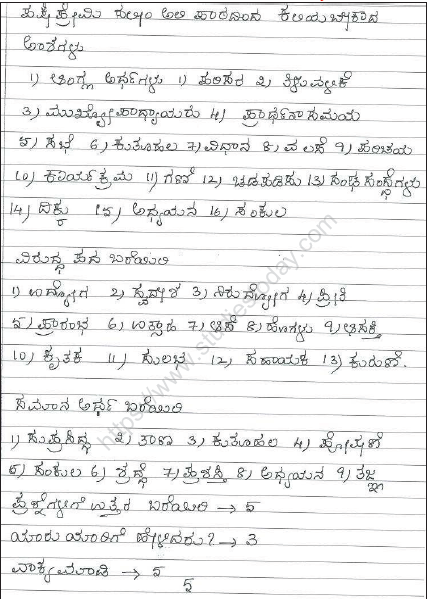 ಪಕ್ಷಿಪ್ರೇಮಿ ಸಲೀಂ ಅಲಿ ಪಾಠದಿಂದ ಕಲಿಯಬೇಕಾದ
ಅಂಶಗಳು
1) ಆಂಗ್ಲ ಅರ್ಥಗಳು 1) ಪರಿಸರ 2) ತಿಳುವಳಿಕೆ
3) ಮುಖ್ಯೋಪಾಧ್ಯಾಯರು 4) ಪ್ರಾರ್ಥನಾ ಸಮಯ
5) ಸಭೆ 6) ಕುತೂಹಲ 7) ವಿಧಾನ 8) ವಲಸೆ 9) ಪರಿಚಯ
10) ಕಾರ್ಯಕ್ರಮ 11) ಗಣಿ 12) ಚಡಪಡಿಸು 13) ಸಂಘ ಸಂಸ್ಥೆಗಳು
14) ದಿಕ್ಕು 15) ಅಧ್ಯಯನ 16) ಸಂಕುಲ
ವಿರುದ್ಧ ಪದ ಬರೆಯಿರಿ
1) ಉದ್ಯೋಗ 2) ಸ್ವದೇಶ 3) ನಿರುದ್ಯೋಗ 4) ಪ್ರೀತಿ
5) ಪ್ರಾರಂಭ 6) ಉತ್ಸಾಹ 7) ಆಸೆ 8) ಹೊಗಳು 9) ಆಸಕ್ತಿ
10) ಕೃತಕ 11) ಸುಲಭ 12) ಸಹಾಯಕ 13) ಕುರುಣೆ.
ಸಮಾನ ಅರ್ಥ ಬರೆಯಿರಿ
1) ಸುಪ್ರಸಿದ್ಧ 2) ತಾಣ 3) ಕುತೂಹಲ 4) ಪೋಷಣೆ
5) ಸಂಕುಲ 6) ಶ್ರದ್ಧೆ 7) ಪ್ರಶಸ್ತಿ 8) ಅಧ್ಯಯನ 9) ತಜ್ಞ
ಪ್ರಶ್ನೆಗಳಿಗೆ ಉತ್ತರ ಬರೆಯಿರಿ → 5
ಯಾರು ಯಾರಿಗೆ ಹೇಳಿದರು? → 3
ವಾಕ್ಯ ಮಾಡಿ → 5
5
https://www.studiestoday.com